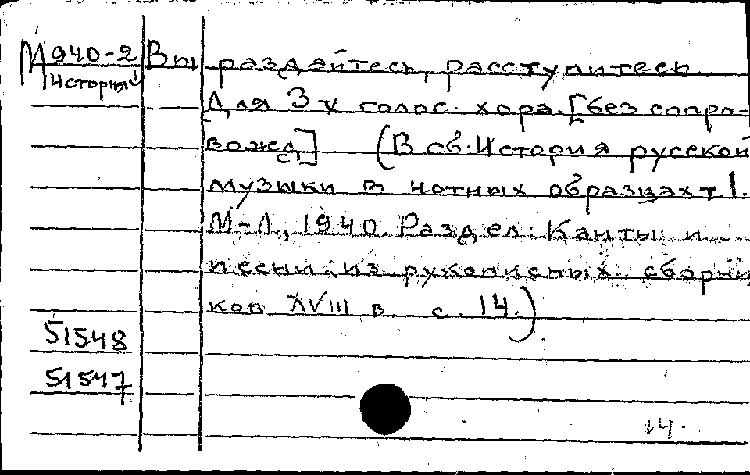 М940-2 Вы раздайтесь, расступитесь
История
Для 3х голос. хора. [без сопро-
вожд] (В сб. История русской
музыки в нотных образцах т 1.
М-Л, 1940. Раздел: Канты и
песни из рукописных сборни
ков XVIII в. с. 14.)
51548
51547
14.